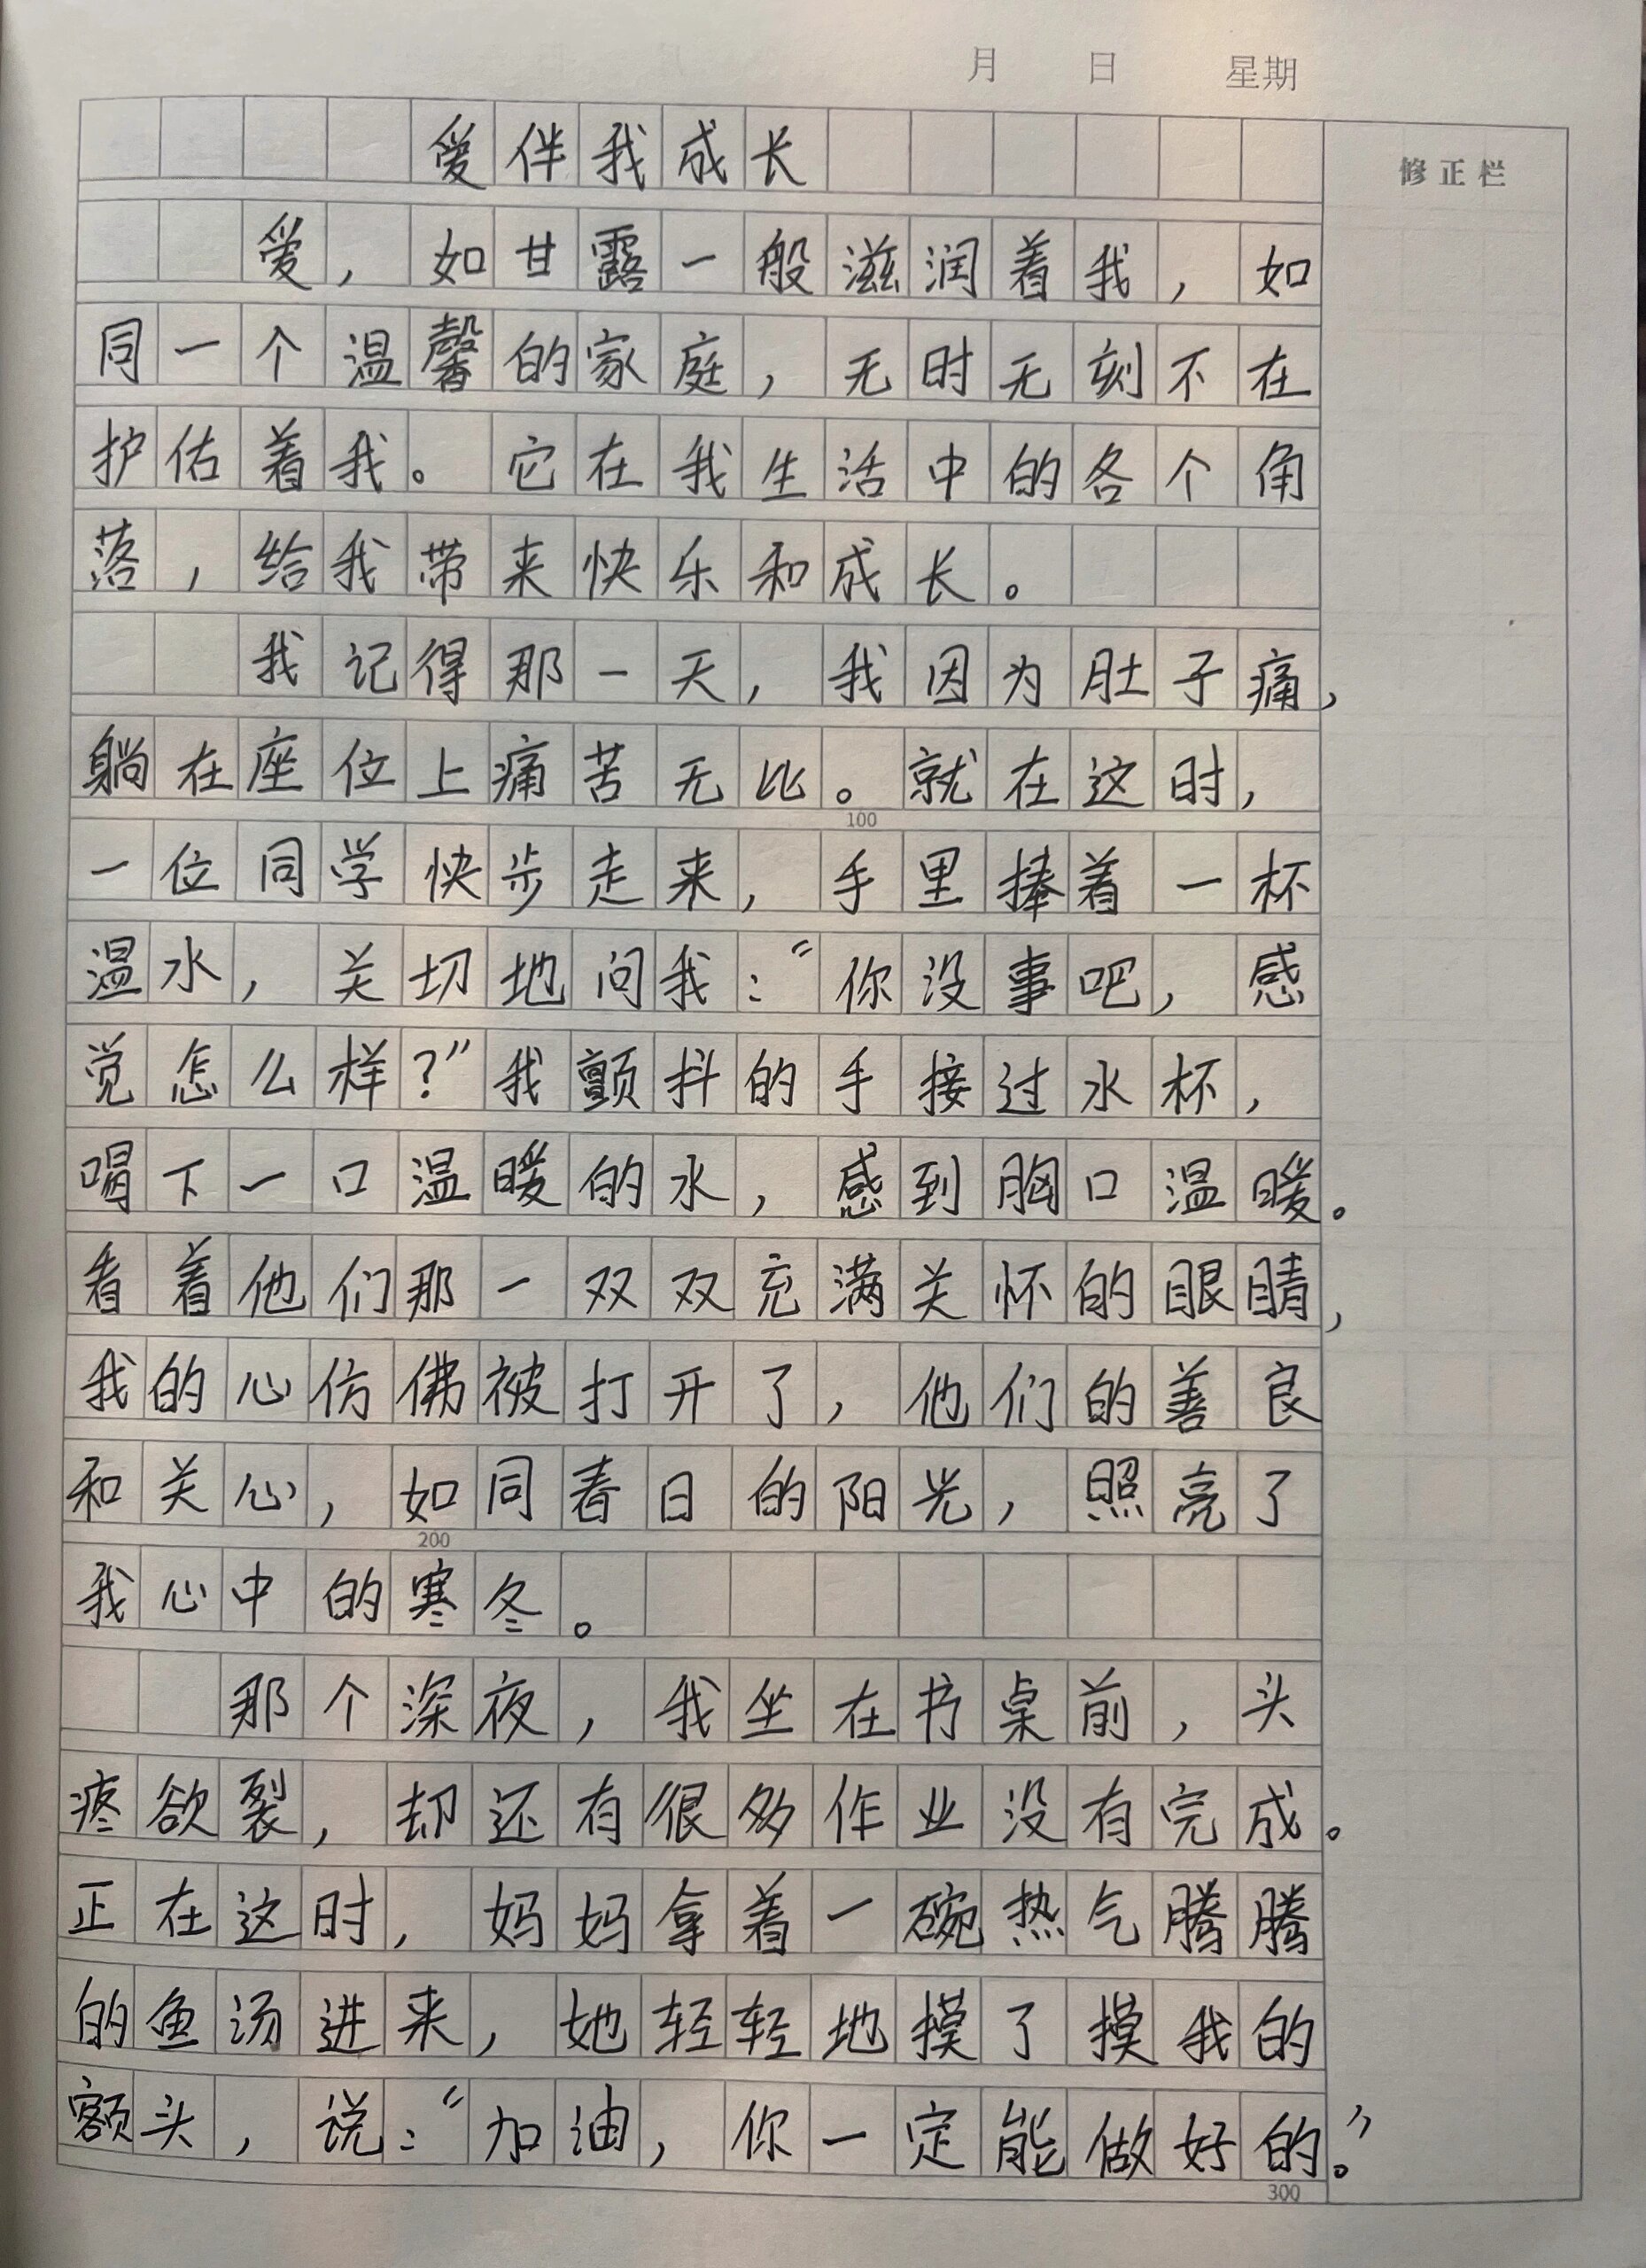 月 日 星期
修正栏
爱伴我成长
爱，如甘露一般滋润着我，如
同一个温馨的家庭，无时无刻不在
护佑着我。它在我生活中的各个角
落，给我带来快乐和成长。
我记得那一天，我因为肚子痛，
躺在座位上痛苦无比。就在这时，
100
一位同学快步走来，手里捧着一杯
温水，关切地问我：“你没事吧，感
觉怎么样？”我颤抖的手接过水杯，
喝下一口温暖的水，感到胸口温暖。
看着他们那一双双充满关怀的眼睛，
我的心仿佛被打开了，他们的善良
和关心，如同春日的阳光，照亮了
200
我心中的寒冬。
那个深夜，我坐在书桌前，头
疼欲裂，却还有很多作业没有完成。
正在这时，妈妈拿着一碗热气腾腾
的鱼汤进来，她轻轻地摸了摸我的
额头，说：“加油，你一定能做好的。”
300